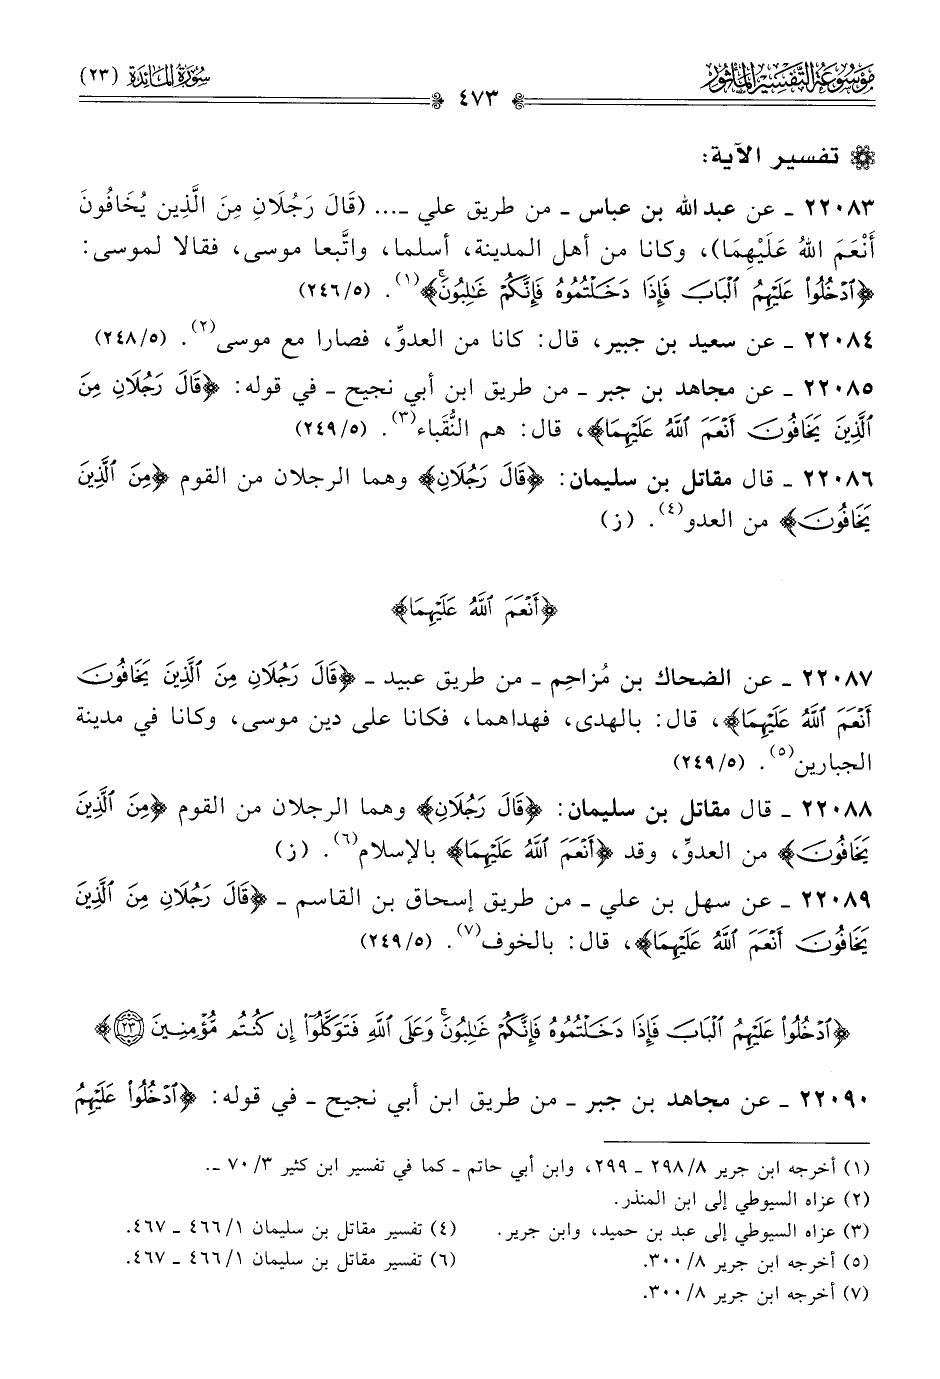 مَوْسُوعَةُ التَّفْسِيرِ المَأْثُور
سُورَةُ المَائِدَة (٢٣)
٤٧٣
تفسير الآية:
٢٢٠٨٣ ـ عن عبد الله بن عباس ـ من طريق علي ـ... (قَالَ رَجُلَانِ مِنَ الَّذِين يُخَافُونَ
أَنْعَمَ اللهُ عَلَيْهِمَا)، وكانا من أهل المدينة، أسلما، واتَّبعا موسى، فقالا لموسى:
﴿ٱدۡخُلُواْ عَلَيۡهِمُ ٱلۡبَابَ فَإِذَا دَخَلۡتُمُوهُ فَإِنَّكُمۡ غَٰلِبُونَۚ﴾(١). (٢٤٦/٥)
٢٢٠٨٤ ـ عن سعيد بن جبير، قال: كانا من العدوِّ، فصارا مع موسى(٢). (٢٤٨/٥)
٢٢٠٨٥ ـ عن مجاهد بن جبر ـ من طريق ابن أبي نجيح ـ في قوله: ﴿قَالَ رَجُلَانِ مِنَ
ٱلَّذِينَ يَخَافُونَ أَنۡعَمَ ٱللَّهُ عَلَيۡهِمَا﴾، قال: هم النُّقَباء(٣). (٢٤٩/٥)
٢٢٠٨٦ ـ قال مقاتل بن سليمان: ﴿قَالَ رَجُلَانِ﴾ وهما الرجلان من القوم ﴿مِنَ ٱلَّذِينَ
يَخَافُونَ﴾ من العدو(٤). (ز)
﴿أَنۡعَمَ ٱللَّهُ عَلَيۡهِمَا﴾
٢٢٠٨٧ ـ عن الضحاك بن مُزاحِم ـ من طريق عبيد ـ ﴿قَالَ رَجُلَانِ مِنَ ٱلَّذِينَ يَخَافُونَ
أَنۡعَمَ ٱللَّهُ عَلَيۡهِمَا﴾، قال: بالهدى، فهداهما، فكانا على دين موسى، وكانا في مدينة
الجبارين(٥). (٢٤٩/٥)
٢٢٠٨٨ ـ قال مقاتل بن سليمان: ﴿قَالَ رَجُلَانِ﴾ وهما الرجلان من القوم ﴿مِنَ ٱلَّذِينَ
يَخَافُونَ﴾ من العدوِّ، وقد ﴿أَنۡعَمَ ٱللَّهُ عَلَيۡهِمَا﴾ بالإسلام(٦). (ز)
٢٢٠٨٩ ـ عن سهل بن علي ـ من طريق إسحاق بن القاسم ـ ﴿قَالَ رَجُلَانِ مِنَ ٱلَّذِينَ
يَخَافُونَ أَنۡعَمَ ٱللَّهُ عَلَيۡهِمَا﴾، قال: بالخوف(٧). (٢٤٩/٥)
﴿ٱدۡخُلُواْ عَلَيۡهِمُ ٱلۡبَابَ فَإِذَا دَخَلۡتُمُوهُ فَإِنَّكُمۡ غَٰلِبُونَۚ وَعَلَى ٱللَّهِ فَتَوَكَّلُوٓاْ إِن كُنتُم مُّؤۡمِنِينَ ٢٣﴾
٢٢٠٩٠ ـ عن مجاهد بن جبر ـ من طريق ابن أبي نجيح ـ في قوله: ﴿ٱدۡخُلُواْ عَلَيۡهِمُ
(١) أخرجه ابن جرير ٢٩٨/٨ ـ ٢٩٩، وابن أبي حاتم ـ كما في تفسير ابن كثير ٧٠/٣ ـ.
(٢) عزاه السيوطي إلى ابن المنذر.
(٣) عزاه السيوطي إلى عبد بن حميد، وابن جرير. (٤) تفسير مقاتل بن سليمان ٤٦٦/١ ـ ٤٦٧.
(٥) أخرجه ابن جرير ٣٠٠/٨. (٦) تفسير مقاتل بن سليمان ٤٦٦/١ ـ ٤٦٧.
(٧) أخرجه ابن جرير ٣٠٠/٨.